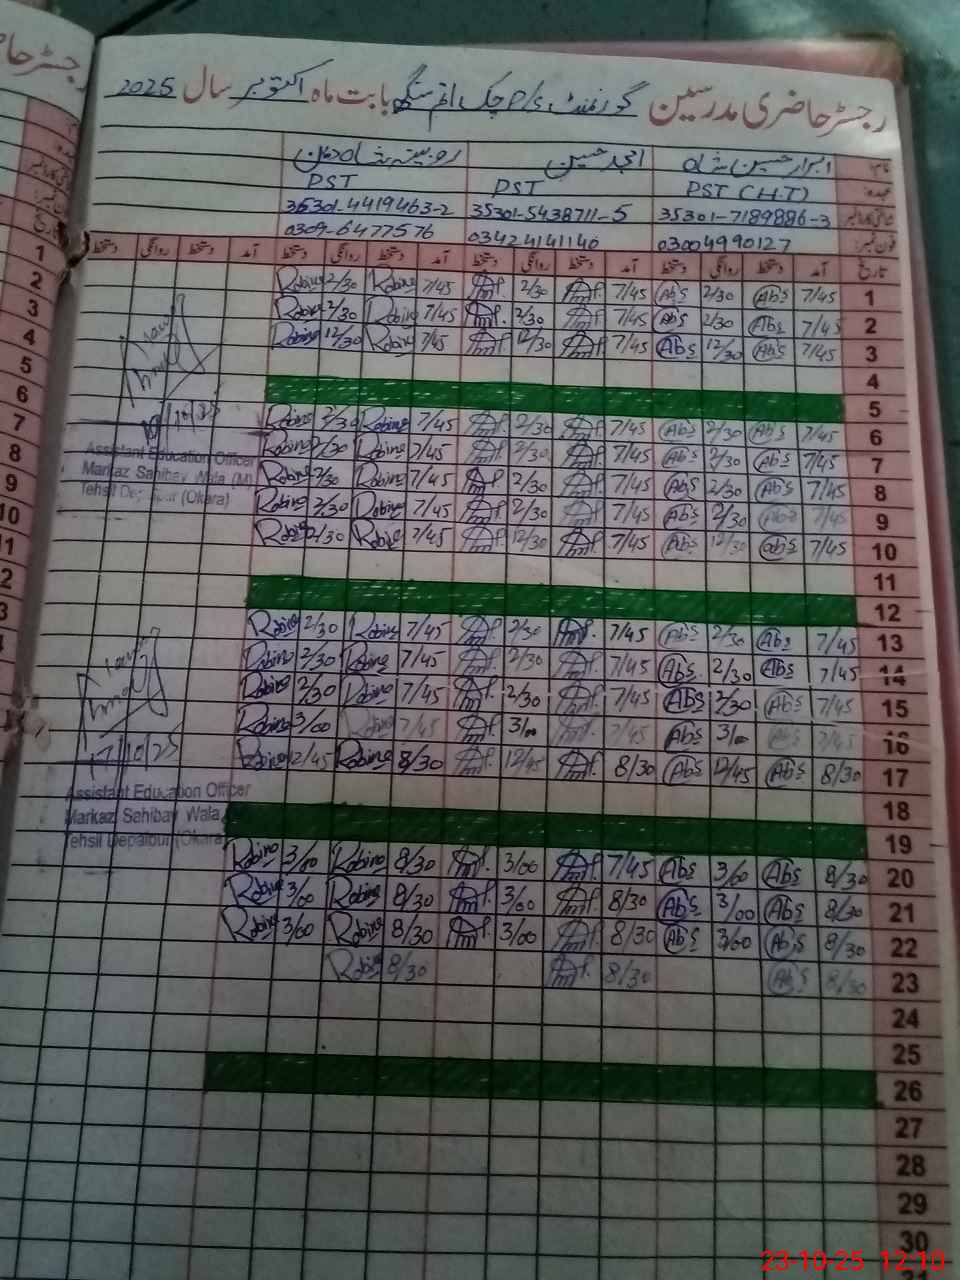 رجسٹر حاضری مدرسین گورنمنٹ P/S چک اتم سنگھ بابت ماہ اکتوبر سال 2025
نام: ابرار حسین شاہ امجد حسین روبینہ شاہ
عہدہ: PST (H.T) PST PST
35301-7189886-3 35301-5438711-5 35301-4419463-2
فون نمبر: 03004990127 03424141140 0309-6477576
تاریخ آمد دستخط روانگی دستخط آمد دستخط روانگی دستخط آمد دستخط روانگی دستخط آمد دستخط روانگی دستخط
1 7/45 Abs 2/30 Abs 7/45 2/30 7/45 Robina 2/30 Robina
2 7/45 Abs 2/30 Abs 7/45 2/30 7/45 Robina 2/30 Robina
3 7/45 Abs 12/30 Abs 7/45 12/30 7/45 Robina 12/30 Robina
4
5
6 7/45 Abs 2/30 Abs 7/45 2/30 7/45 Robina 2/30 Robina
7 7/45 Abs 2/30 Abs 7/45 2/30 7/45 Robina 2/30 Robina
8 7/45 Abs 2/30 Abs 7/45 2/30 7/45 Robina 2/30 Robina
9 7/45 Abs 2/30 Abs 7/45 2/30 7/45 Robina 2/30 Robina
10 7/45 Abs 12/30 Abs 7/45 12/30 7/45 Robina Robina
11
12
13 7/45 Abs 2/30 Abs 7/45 2/30 7/45 Robina 2/30 Robina
14 7/45 Abs 2/30 Abs 7/45 2/30 7/45 Robina 2/30 Robina
15 7/45 Abs 2/30 Abs 7/45 2/30 7/45 Robina 2/30 Robina
16 7/45 Abs 3/00 Abs 7/45 3/00 7/45 Robina 3/00 Robina
17 8/30 Abs 12/45 Abs 8/30 12/45 8/30 Robina 12/45 Robina
18
19
20 8/30 Abs 3/00 Abs 7/45 3/00 8/30 Robina 3/00 Robina
21 8/30 Abs 3/00 Abs 8/30 3/00 8/30 Robina 3/00 Robina
22 8/30 Abs 3/00 Abs 8/30 3/00 8/30 Robina 3/00 Robina
23 8/30 Abs 8/30 8/30 Robina
24
25
26
27
28
29
30
Assistant Education Officer
Markaz Sahibay Wala (M)
Tehsil Depalpur (Okara)
17/10/25
Assistant Education Officer
Markaz Sahibay Wala
Tehsil Depalpur (Okara)
23-10-25 12:10